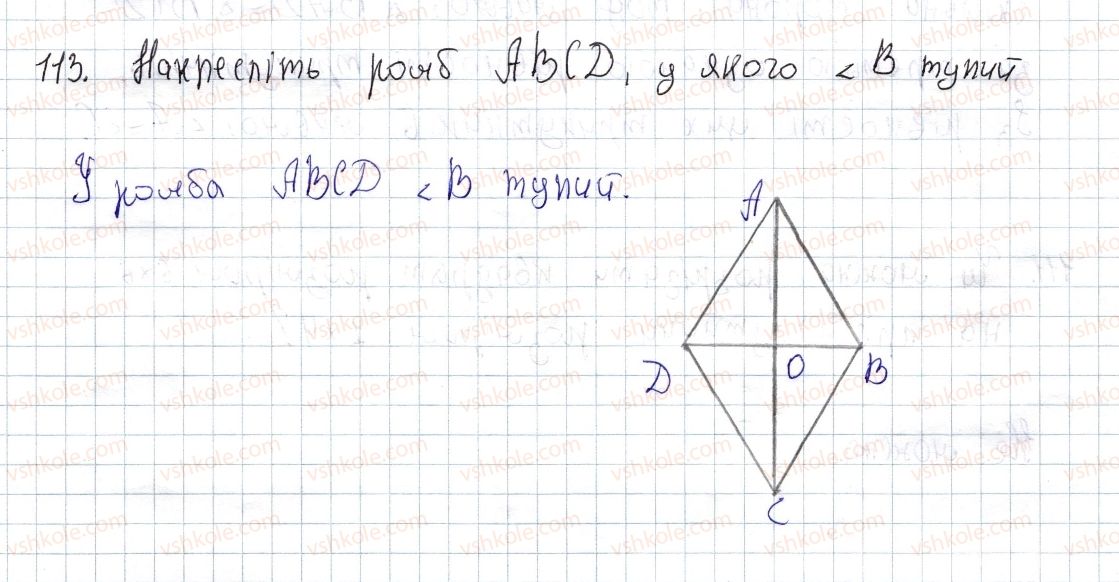 113. Накресліть ромб ABCD, у якого ∠B тупий
У ромба ABCD ∠B тупий.
A
D O B
C